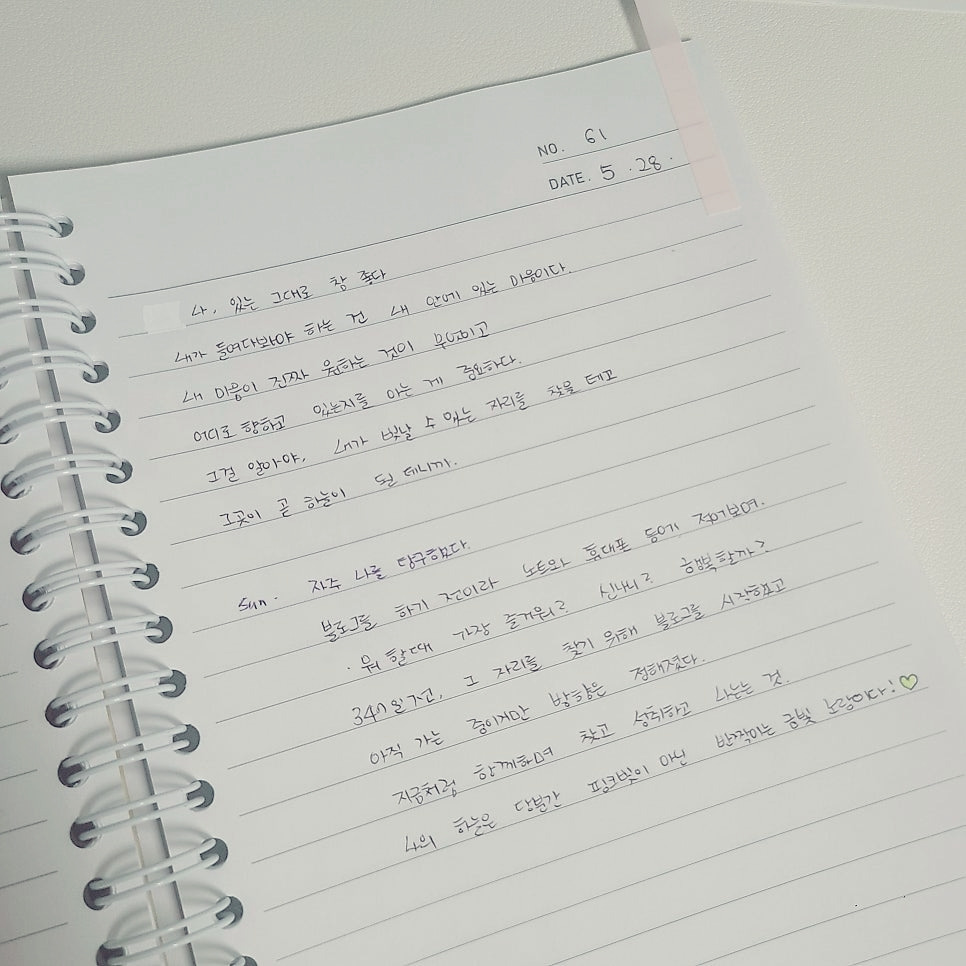 NO. 61
DATE. 5 . 28 .
나, 있는 그대로 참 좋다
내가 들여다봐야 하는 건 내 안에 있는 마음이다.
내 마음이 진짜 원하는 것이 무엇이고
어디로 향하고 있는지를 아는 게 중요하다.
그걸 알아야, 내가 빛날 수 있는 자리를 찾을 테고
그곳이 곧 하늘이 될 테니까.
Sun. 자주 나를 탐구했다.
블로그를 하기 전이라 노트와 휴대폰 등에 적어보며.
. 뭐 할때 가장 즐거워? 신나니? 행복할까?
34n일 전, 그 자리를 찾기 위해 블로그를 시작했고
아직 가는 중이지만 방향은 정해졌다.
지금처럼 함께하며 찾고 성취하고 나누는 것.
나의 하늘은 당분간 핑크빛이 아닌 반짝이는 금빛 노랑이다!